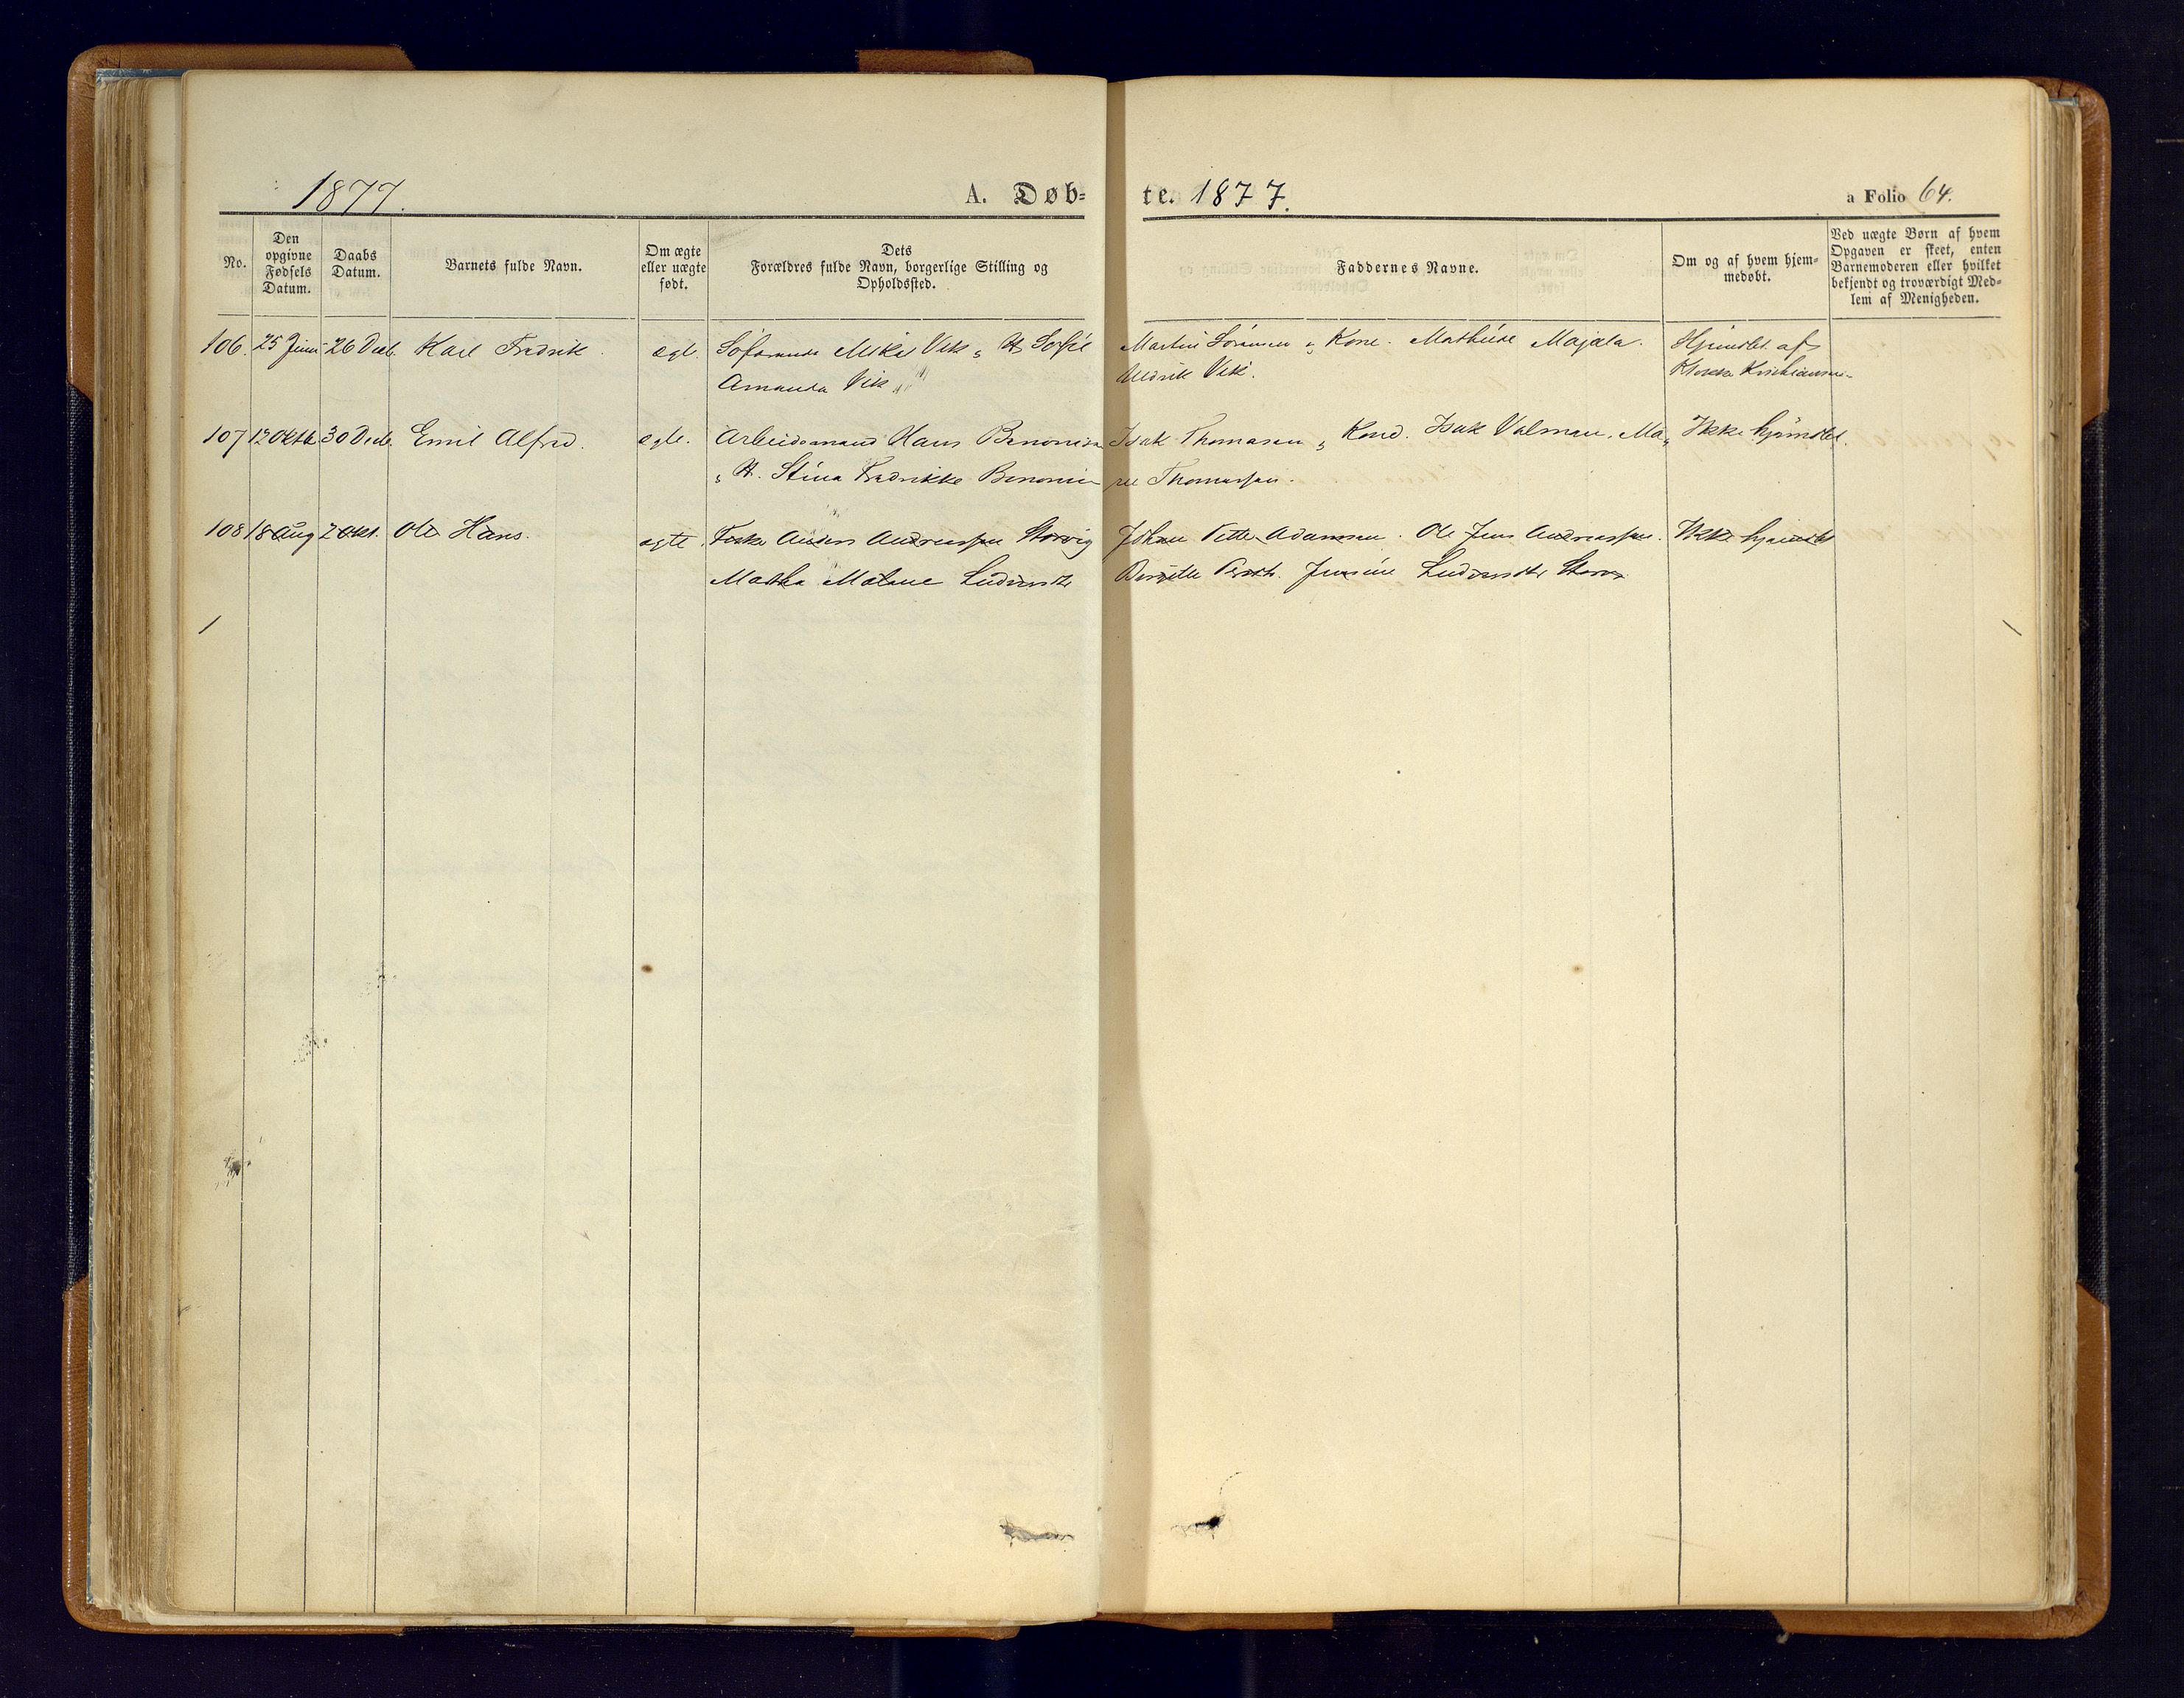 1877. A. Døb-
te. 1877. a Folio 64.
No.
Den opgivne Fødsels Datum.
Daabs Datum.
Barnets fulde Navn.
Om ægte eller uægte født.
Dets Forældres fulde Navn, borgerlige Stilling og Opholdssted.
Faddernes Navne.
Om og af hvem hjemmedøbt.
Ved uægte Børn af hvem Opgaven er skeet, enten Barnemoderen eller hvilket bekjendt og troværdigt Medlem af Menigheden.
106. 25 Juni 26 Decb. Karl Fredrik. ægte. Mika Vik Sofie Martin Sørensen Kone. Majala. Hjemdbt. af
Amanda Vik Vik. Kristiansen
107 12 Oktb. 30 Decb. Emil Alfred. ægte. Arbeidsmand Hans Benonisen Isak Thomasen Kone. Isak Valman. Ma- Ikke hjemdbt.
H. Stina Fredrikke Benonisen Thomassen.
108 18 Aug 7 Okt. Ole Hans. ægte. Fisker Anders Andreassen Storvig Johan Petter Adamsen. Ole Jens Andreassen. Ikke hjemdbt
Martha Malene Jensine